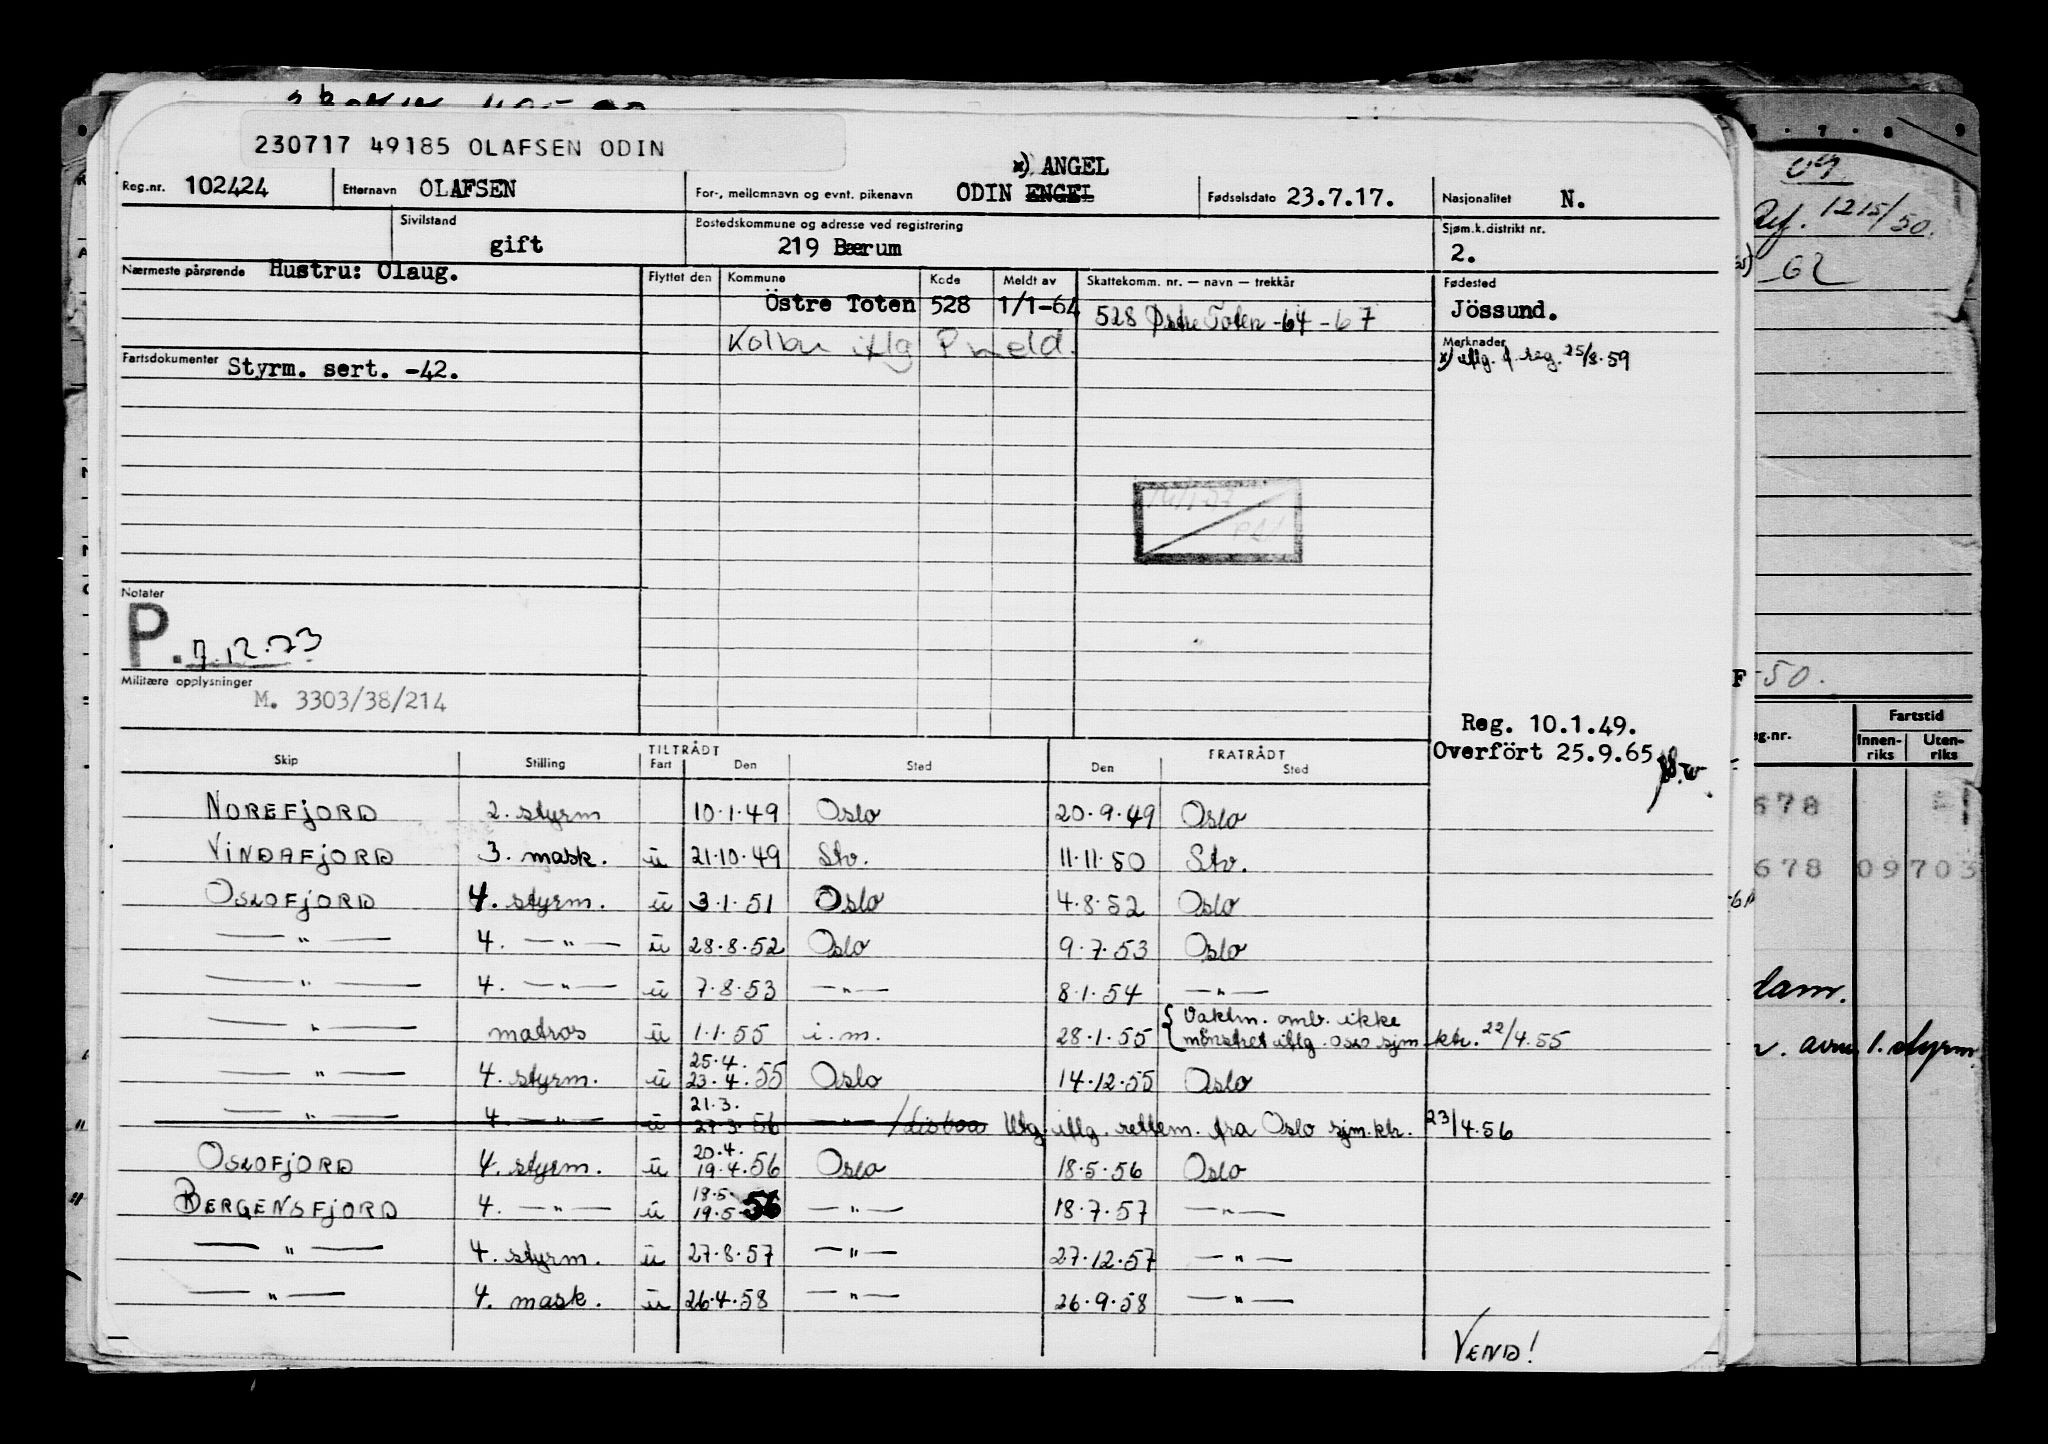 230717 49185 OLAFSEN ODIN
x) ANGEL
Reg.nr. 102424 Etternavn OLAFSEN For-, mellomnavn og evnt. pikenavn ODIN ENGEL Fødselsdato 23.7.17. Nasjonalitet N.
Sivilstand gift Bostedskommune og adresse ved registrering 219 Bærum Sjøm.k.distrikt nr. 2.
Nærmeste pårørende Hustru: Olaug. Flyttet den Kommune Kode Meldt av Skattekomm. nr. — navn — trekkår Fødested Jössund.
Östre Toten 528 1/1-64 528 Østre Toten -64 -67
Kolbu iflg P meld.
Merknader
x) iflg. f. reg. 25/8.59
Fartsdokumenter Styrm. sert. -42.
Notater
P. 7.12.73
Militære opplysninger
M. 3303/38/214
Reg. 10.1.49.
Overfört 25.9.65
TILTRÅDT FRATRÅDT
Skip Stilling Fart Den Sted Den Sted
NOREFJORD 2. styrm 10.1.49 Oslo 20.9.49 Oslo
VINDAFJORD 3. mask. u 21.10.49 Stv. 11.11.50 Stv.
OSLOFJORD 4. styrm. u 3.1.51 Oslo 4.8.52 Oslo
— " — 4. — " — u 28.8.52 Oslo 9.7.53 Oslo
— " — 4. — " — u 7.8.53 — " — 8.1.54 — " —
— " — matros u 1.1.55 i.m. 28.1.55 { Vaktm. omb. ikke
mønstret iflg. Oslo sjm.ktr. 22/4.55
25.4.
— " — 4. styrm. u 23.4.55 Oslo 14.12.55 Oslo
21.3.
— " — 4. — " — u 27.3.56 — " — /Lisboa Utg. iflg. rettem. fra Oslo sjm.ktr. 23/4.56
20.4.
OSLOFJORD 4. styrm. u 19.4.56 Oslo 18.5.56 Oslo
18.5.
BERGENSFJORD 4. — " — u 19.5.56 — " — 18.7.57 — " —
— " — 4. styrm. u 27.8.57 — " — 27.12.57 — " —
— " — 4. mask. u 26.4.58 — " — 26.9.58 — " —
VEND!
7 8 9
Ref. 1215/50.
62
F -50.
Fartstid
g.nr. Innen-riks Uten-riks
678
678 09703
dam.
1. styrm.